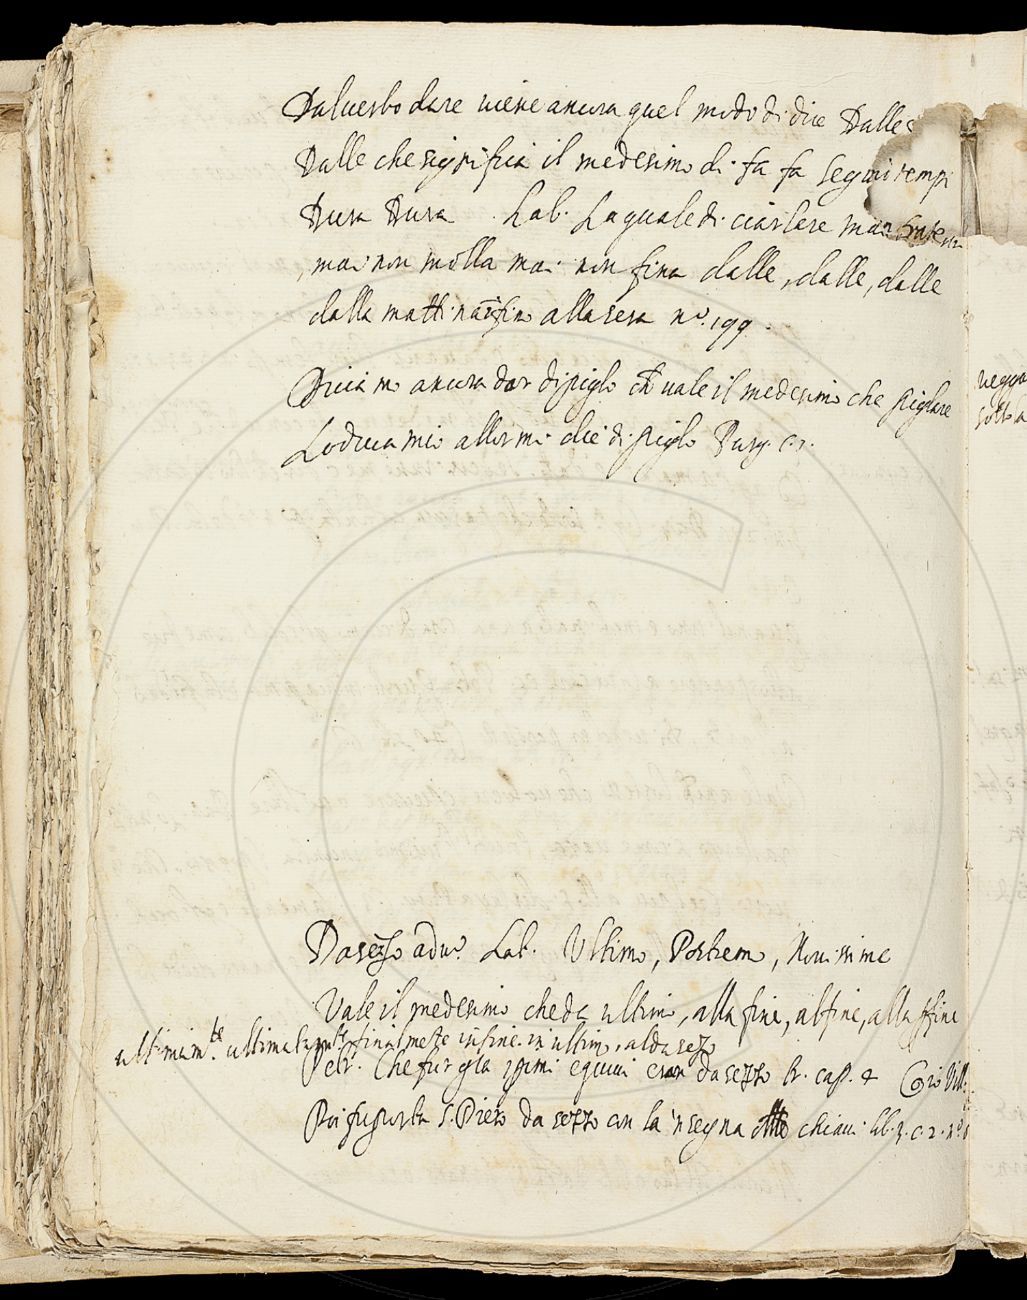 Dal verbo dare viene ancora quel modo di dire Dalle
Dalle che significa il medesimo di fa fa segui tempi
Dura Dura. Lab. La quale di ciarlare mai
mai non molla mai non fina dalle, dalle, dalle
dalla mattina alla sera n.º 199.
Diciamo ancora dar di piglo che vale il medesimo che piglare
Lo duca mio allor mi diè di piglo Purg. c. 1.
Da sezzo adv.º Lat. Ultimo, Postremo, Novissime
Vale il medesimo che da ultimo, alla fine, al fine, alla fine
ultimam.te ultimatam.te finalmente in fine. in ultimo, al da sezo
Petr. Che fur gia primi e quivi eran da sezzo tr. cap. 4
Poi fu porta S. Piero da sezzo con la 'nsegna chiavi lib. 3. c. 2. n.º
vegga